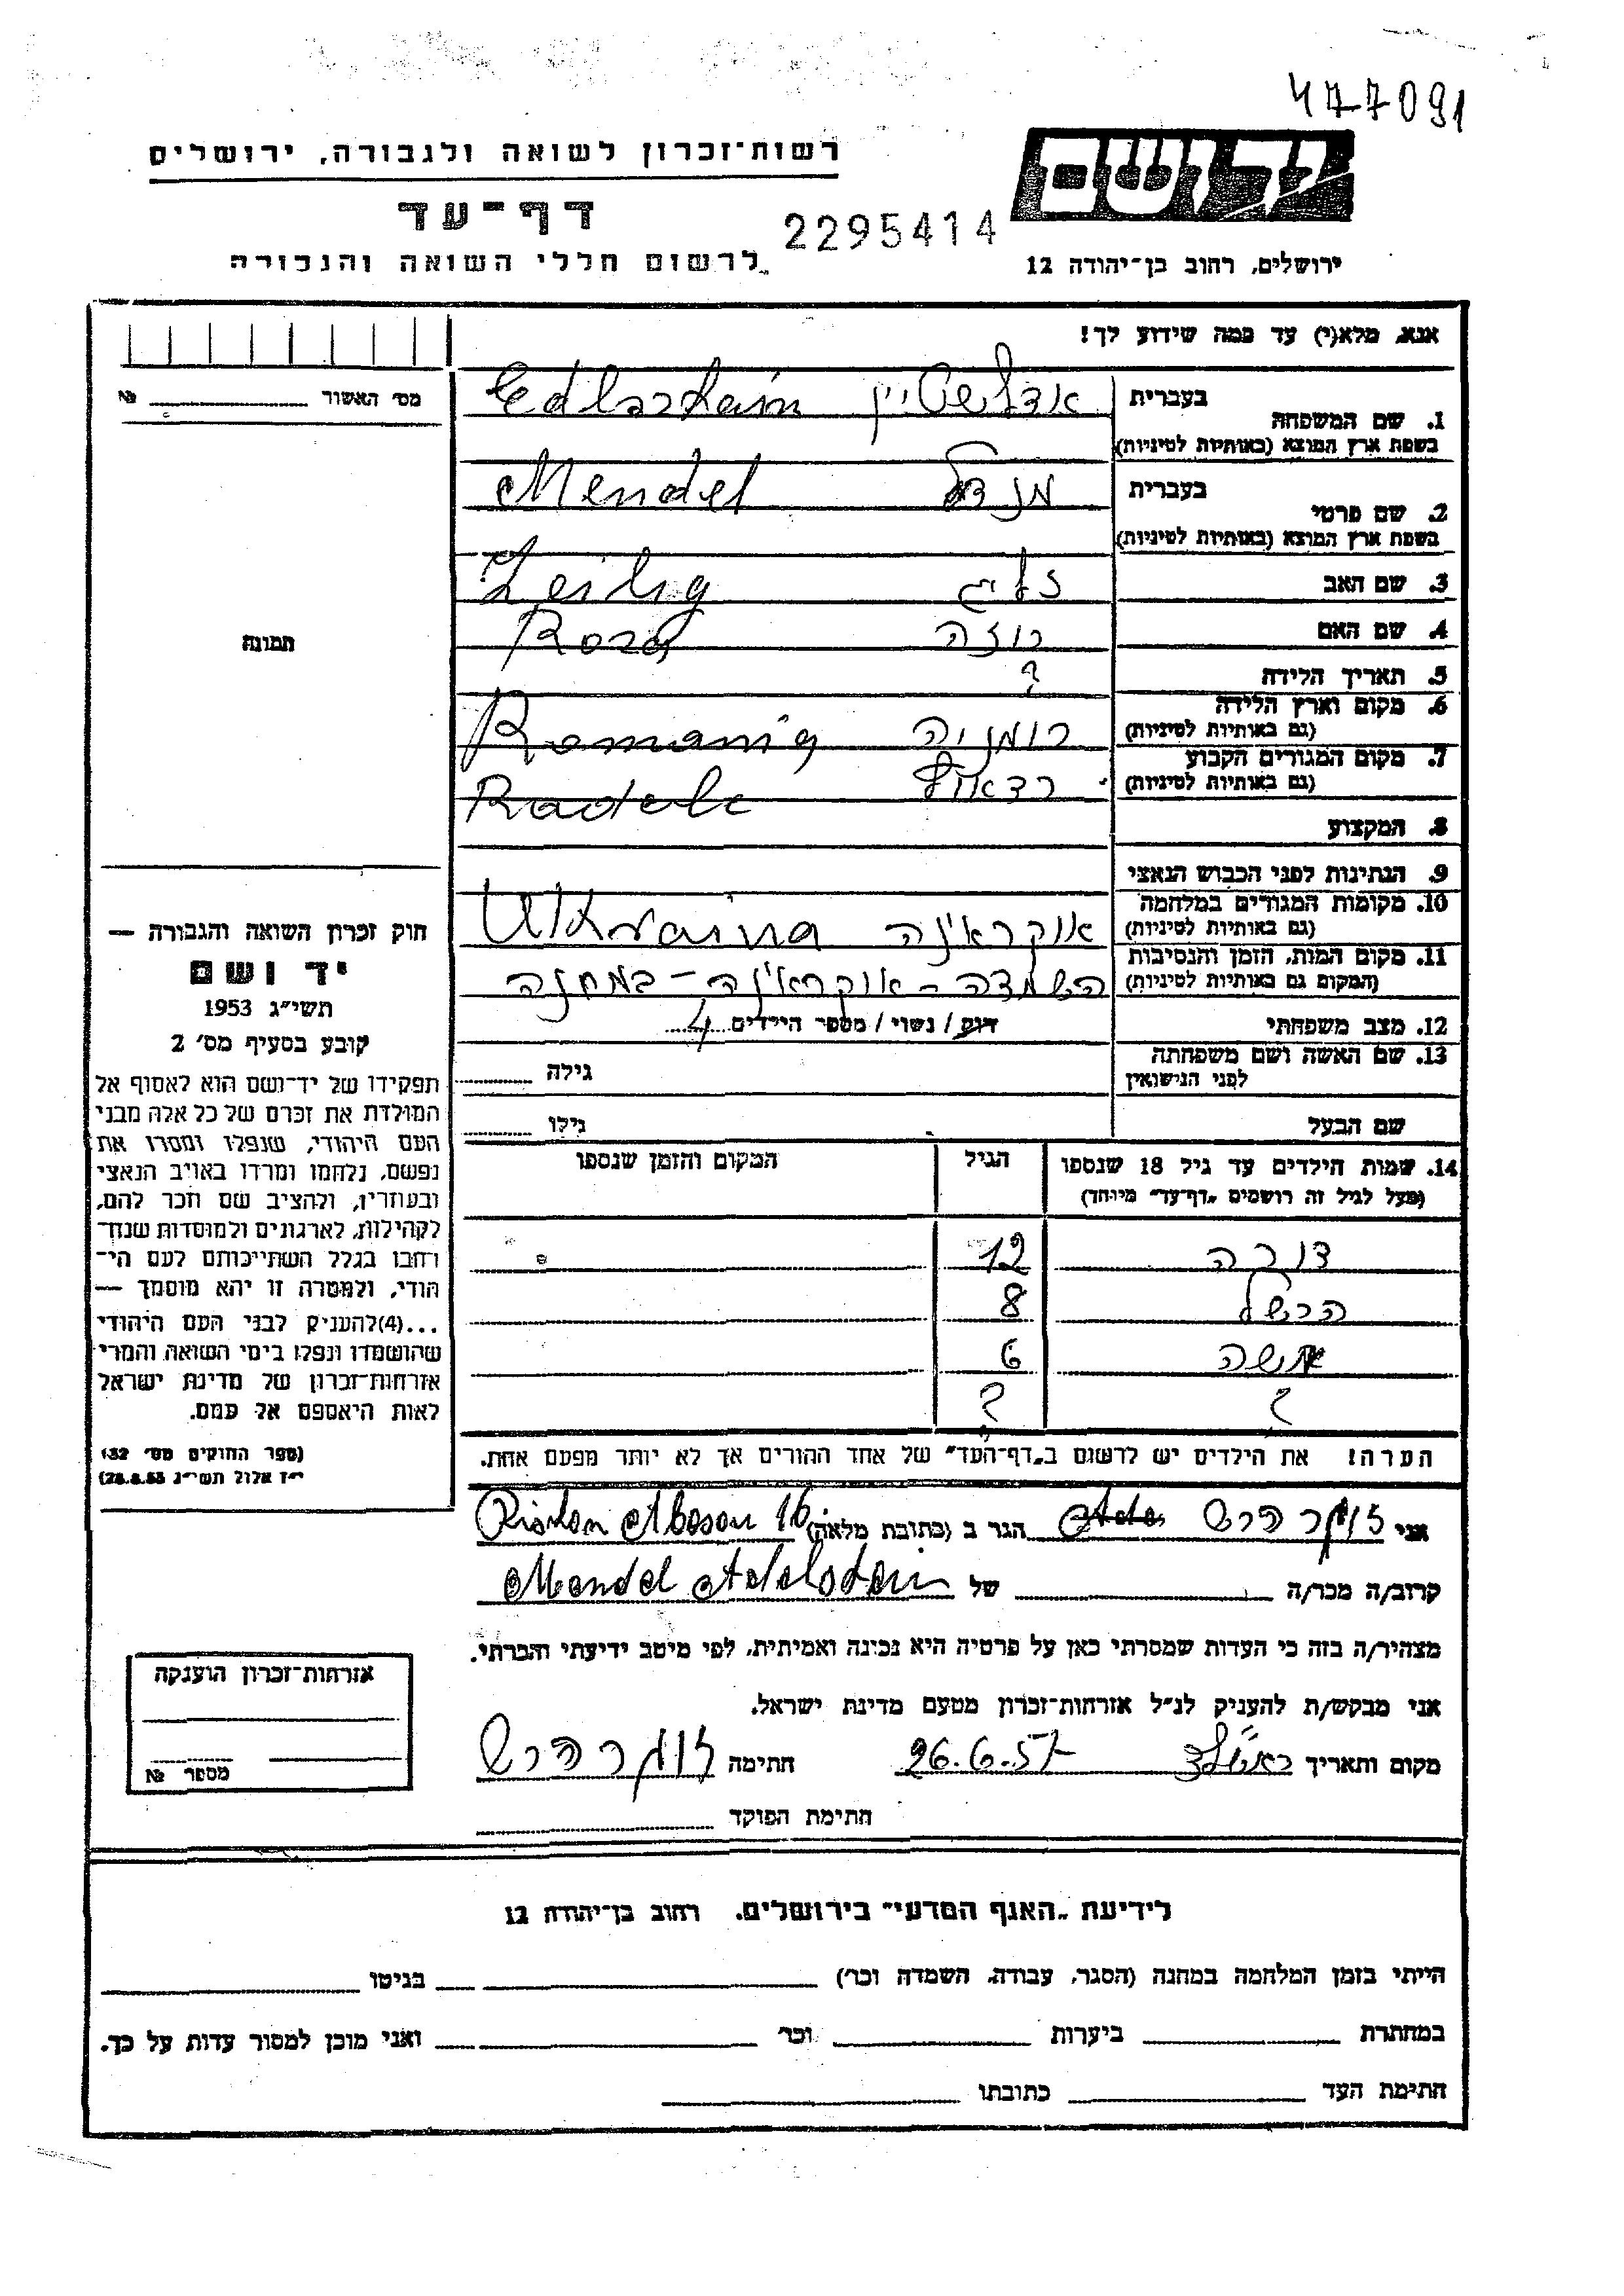 477091
רשות־זכרון לשואה ולגבורה, ירושלים
יד ושם
דף־עד
2295414
לרשום חללי השואה והגבורה
ירושלים, רחוב בן־יהודה 12
אנא, מלא(י) עד כמה שידוע לך!
מס׳ האשור № 
1. שם המשפחה בעברית אדלשטיין Edlerstein
בשפת ארץ המוצא (באותיות לטיניות)
2. שם פרטי בעברית מנדל Mendel
בשפת ארץ המוצא (באותיות לטיניות)
3. שם האב זליג Zeilig
4. שם האם רוזה Roza
תמונה
5. תאריך הלידה ?
6. מקום וארץ הלידה רומניה Romania
(גם באותיות לטיניות)
7. מקום המגורים הקבוע
(גם באותיות לטיניות)
8. המקצוע
9. הנתינות לפני הכבוש הנאצי
10. מקומות המגורים במלחמה אוקראינה Ukraina
(גם באותיות לטיניות)
11. מקום המות, הזמן והנסיבות
(המקום גם באותיות לטיניות) השמדה - אוקראינה - במחנה
12. מצב משפחתי רווק / נשוי / מספר הילדים 4
13. שם האשה ושם משפחתה גילה
לפני הנישואין
שם הבעל גילו
14. שמות הילדים עד גיל 18 שנספו הגיל המקום והזמן שנספו
(מעל לגיל זה רושמים „דף־עד״ מיוחד)
דורה 12
הרשל 8
6
? ?
הערה! את הילדים יש לרשום ב„דף־העד״ של אחד ההורים אך לא יותר מפעם אחת.
חוק זכרון השואה והגבורה —
יד ושם
תשי״ג 1953
קובע בסעיף מס׳ 2
תפקידו של יד־ושם הוא לאסוף אל
המולדת את זכרם של כל אלה מבני
העם היהודי, שנפלו ומסרו את
נפשם, נלחמו ומרדו באויב הנאצי
ובעוזריו, ולהציב שם וזכר להם,
לקהילות, לארגונים ולמוסדות שנח־
רבו בגלל השתייכותם לעם הי־
הודי, ולמטרה זו יהא מוסמך —
...(4) להעניק לבני העם היהודי
שהושמדו ונפלו בימי השואה והמרי
אזרחות־זכרון של מדינת ישראל
לאות היאספם אל עמם.
(ספר החוקים מס׳ 132
י״ז אלול תשי״ג 28.8.53)
אני הרש הגר ב (כתובת מלאה) 16
קרוב/ה מכר/ה של Mendel Adelstein
מצהיר/ה בזה כי העדות שמסרתי כאן על פרטיה היא נכונה ואמיתית, לפי מיטב ידיעתי והכרתי.
אני מבקש/ת להעניק לנ״ל אזרחות־זכרון מטעם מדינת ישראל.
מקום ותאריך ראשל״צ 26.6.57 חתימה הרש
חתימת הפוקד
אזרחות־זכרון הוענקה
מספר №
לידיעת „האגף המדעי״ בירושלים, רחוב בן־יהודה 12
הייתי בזמן המלחמה במחנה (הסגר, עבודה, השמדה וכו׳) בגיטו
במחתרת ביערות וכו׳ ואני מוכן למסור עדות על כך.
חתימת העד כתובתו